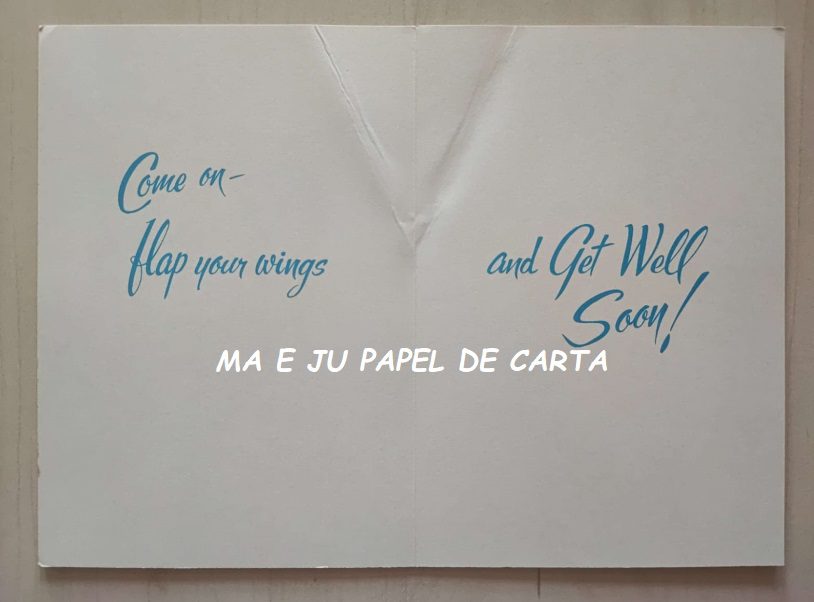 Come on-
flap your wings
and Get Well
Soon!
MA E JU PAPEL DE CARTA